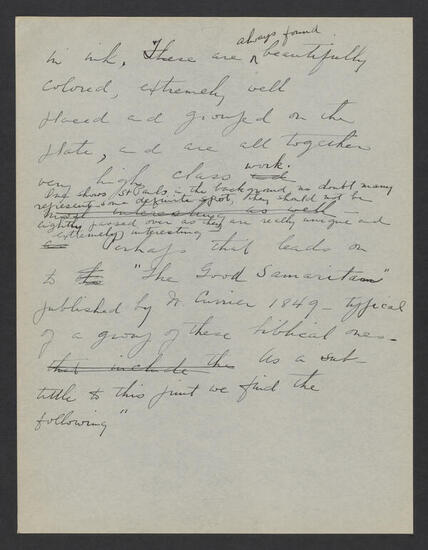 always found
in ink, These are beautifully
colored, extremely well
placed and grouped on the
plate, and are all together
very high class ad work.
One shows St Pauls in the background, no doubt many
represent some definite spot, they should not be
most interesting as well
lightly passed over as they are really unique and
extremely interesting
Perhaps that leads on
to the "The Good Samaritan"
published by N. Currier 1849 - typical
of a group of these biblical ones -
that include the As a sub-
title to this print we find the
following "